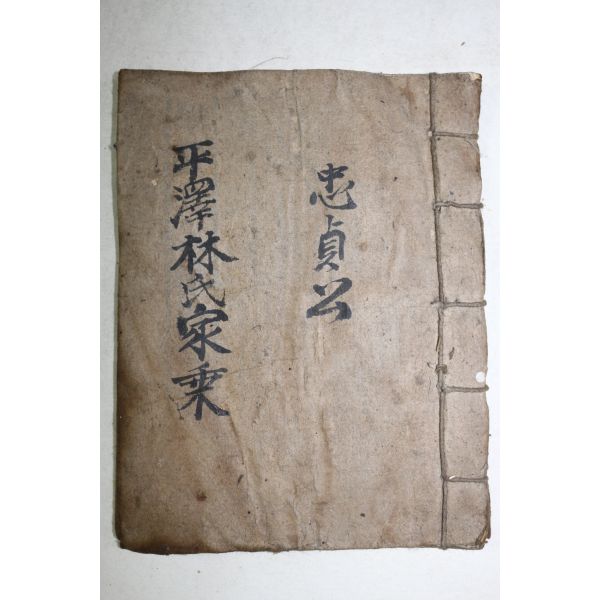 忠貞公
平澤林氏家乘